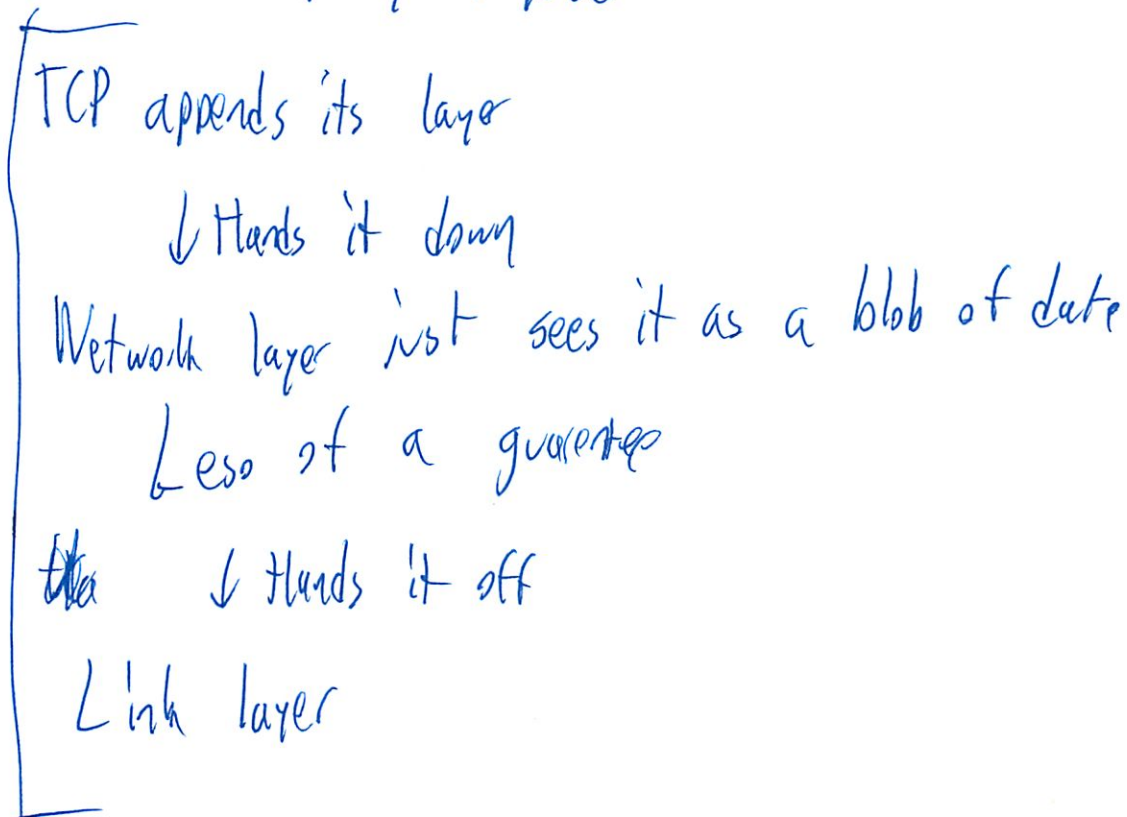 TCP appends its layer
↓ Hands it down
Network layer just sees it as a blob of data
Less of a guarentee
↓ Hands it off
Link layer